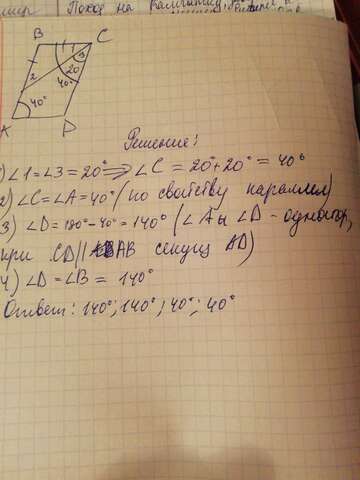 Поход на
B
C
1
3
2
20
40°
40°
A
D
Решение:
1) ∠1=∠3=20° ⟹ ∠C = 20°+20° = 40°
2) ∠C=∠A=40° (по свойству параллел)
3) ∠D = 180°-40° = 140° (∠A и ∠D - одностор,
при CD || AB секущ AD)
4) ∠D = ∠B = 140°
Ответ: 140°; 140°; 40°; 40°